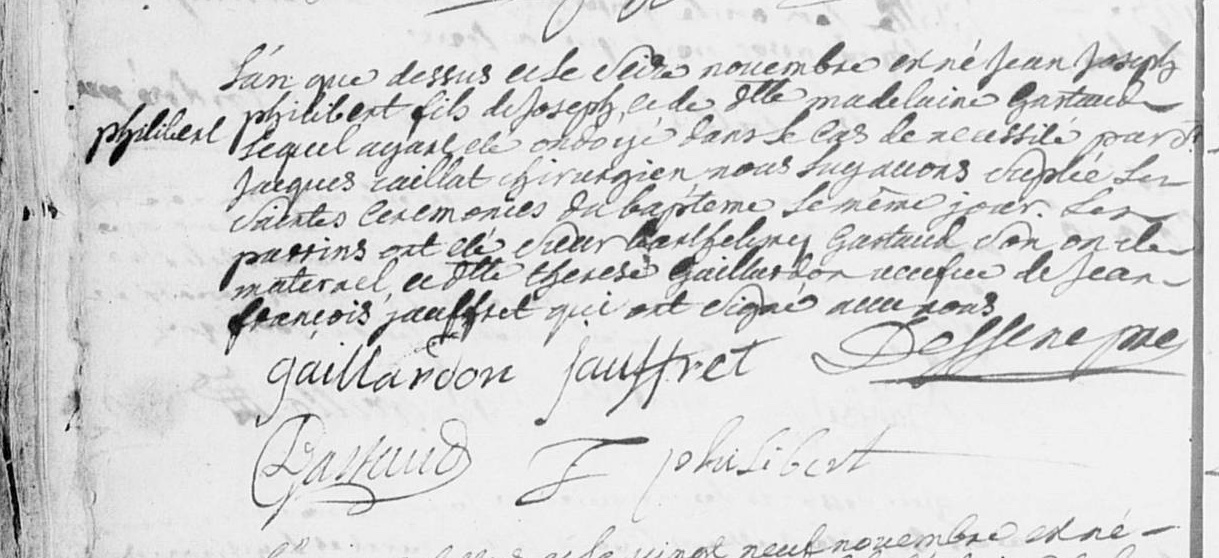 L'an que dessus et le seize novembre est né Jean Joseph
philibert
philibert fils de Joseph, et de dlle madelaine Gastaud
lequel ayant eté ondoyé dans le cas de necessité par sr
Jacques caillat chirurgien nous luy avons suplée les
saintes Ceremonies du baptême le même jour. Les
parrins ont eté sieur barthelemy Gastaud son oncle
maternel, et dlle therese Gaillardon veufve de Jean
françois jauffret qui ont signé avec nous
gaillardon jauffret
Gastaud J philibert
et le vingt neuf novembre est né